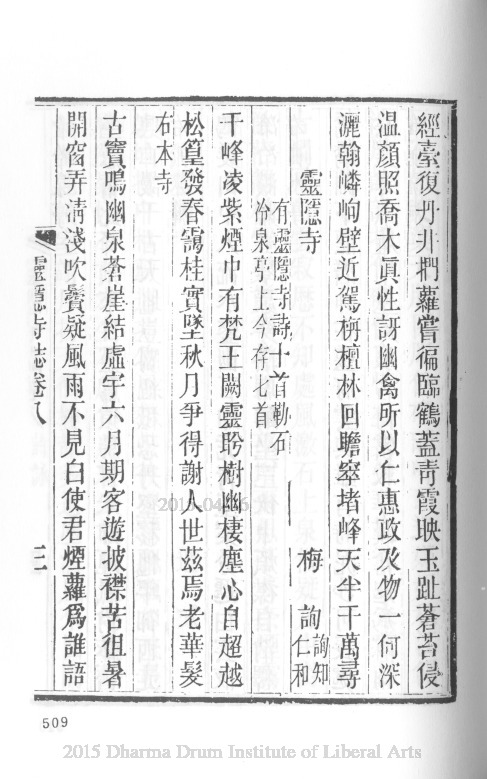 經臺復丹井捫蘿嘗徧臨鶴蓋青霞映玉趾蒼苔侵
温顏照喬木眞性訝幽禽所以仁惠政及物一何深
灑翰嶙峋壁近駕栴檀林回瞻窣堵峰天半千萬尋
靈隱寺 梅詢 詢知仁和
有靈隱寺詩十首勒石
冷泉亭上今存七首
千峰凌紫煙中有梵王闕靈盻樹幽棲塵心自超越
松篁發春靄桂實墜秋月爭得謝人世茲焉老華髮
右本寺
古竇鳴幽泉蒼崖結虛宇六月期客遊披襟苦徂暑
開窗弄清淺吹鬢疑風雨不見白使君煙蘿爲誰語
靈隱寺誌卷八 三
509
2015 Dharma Drum Institute of Liberal Arts